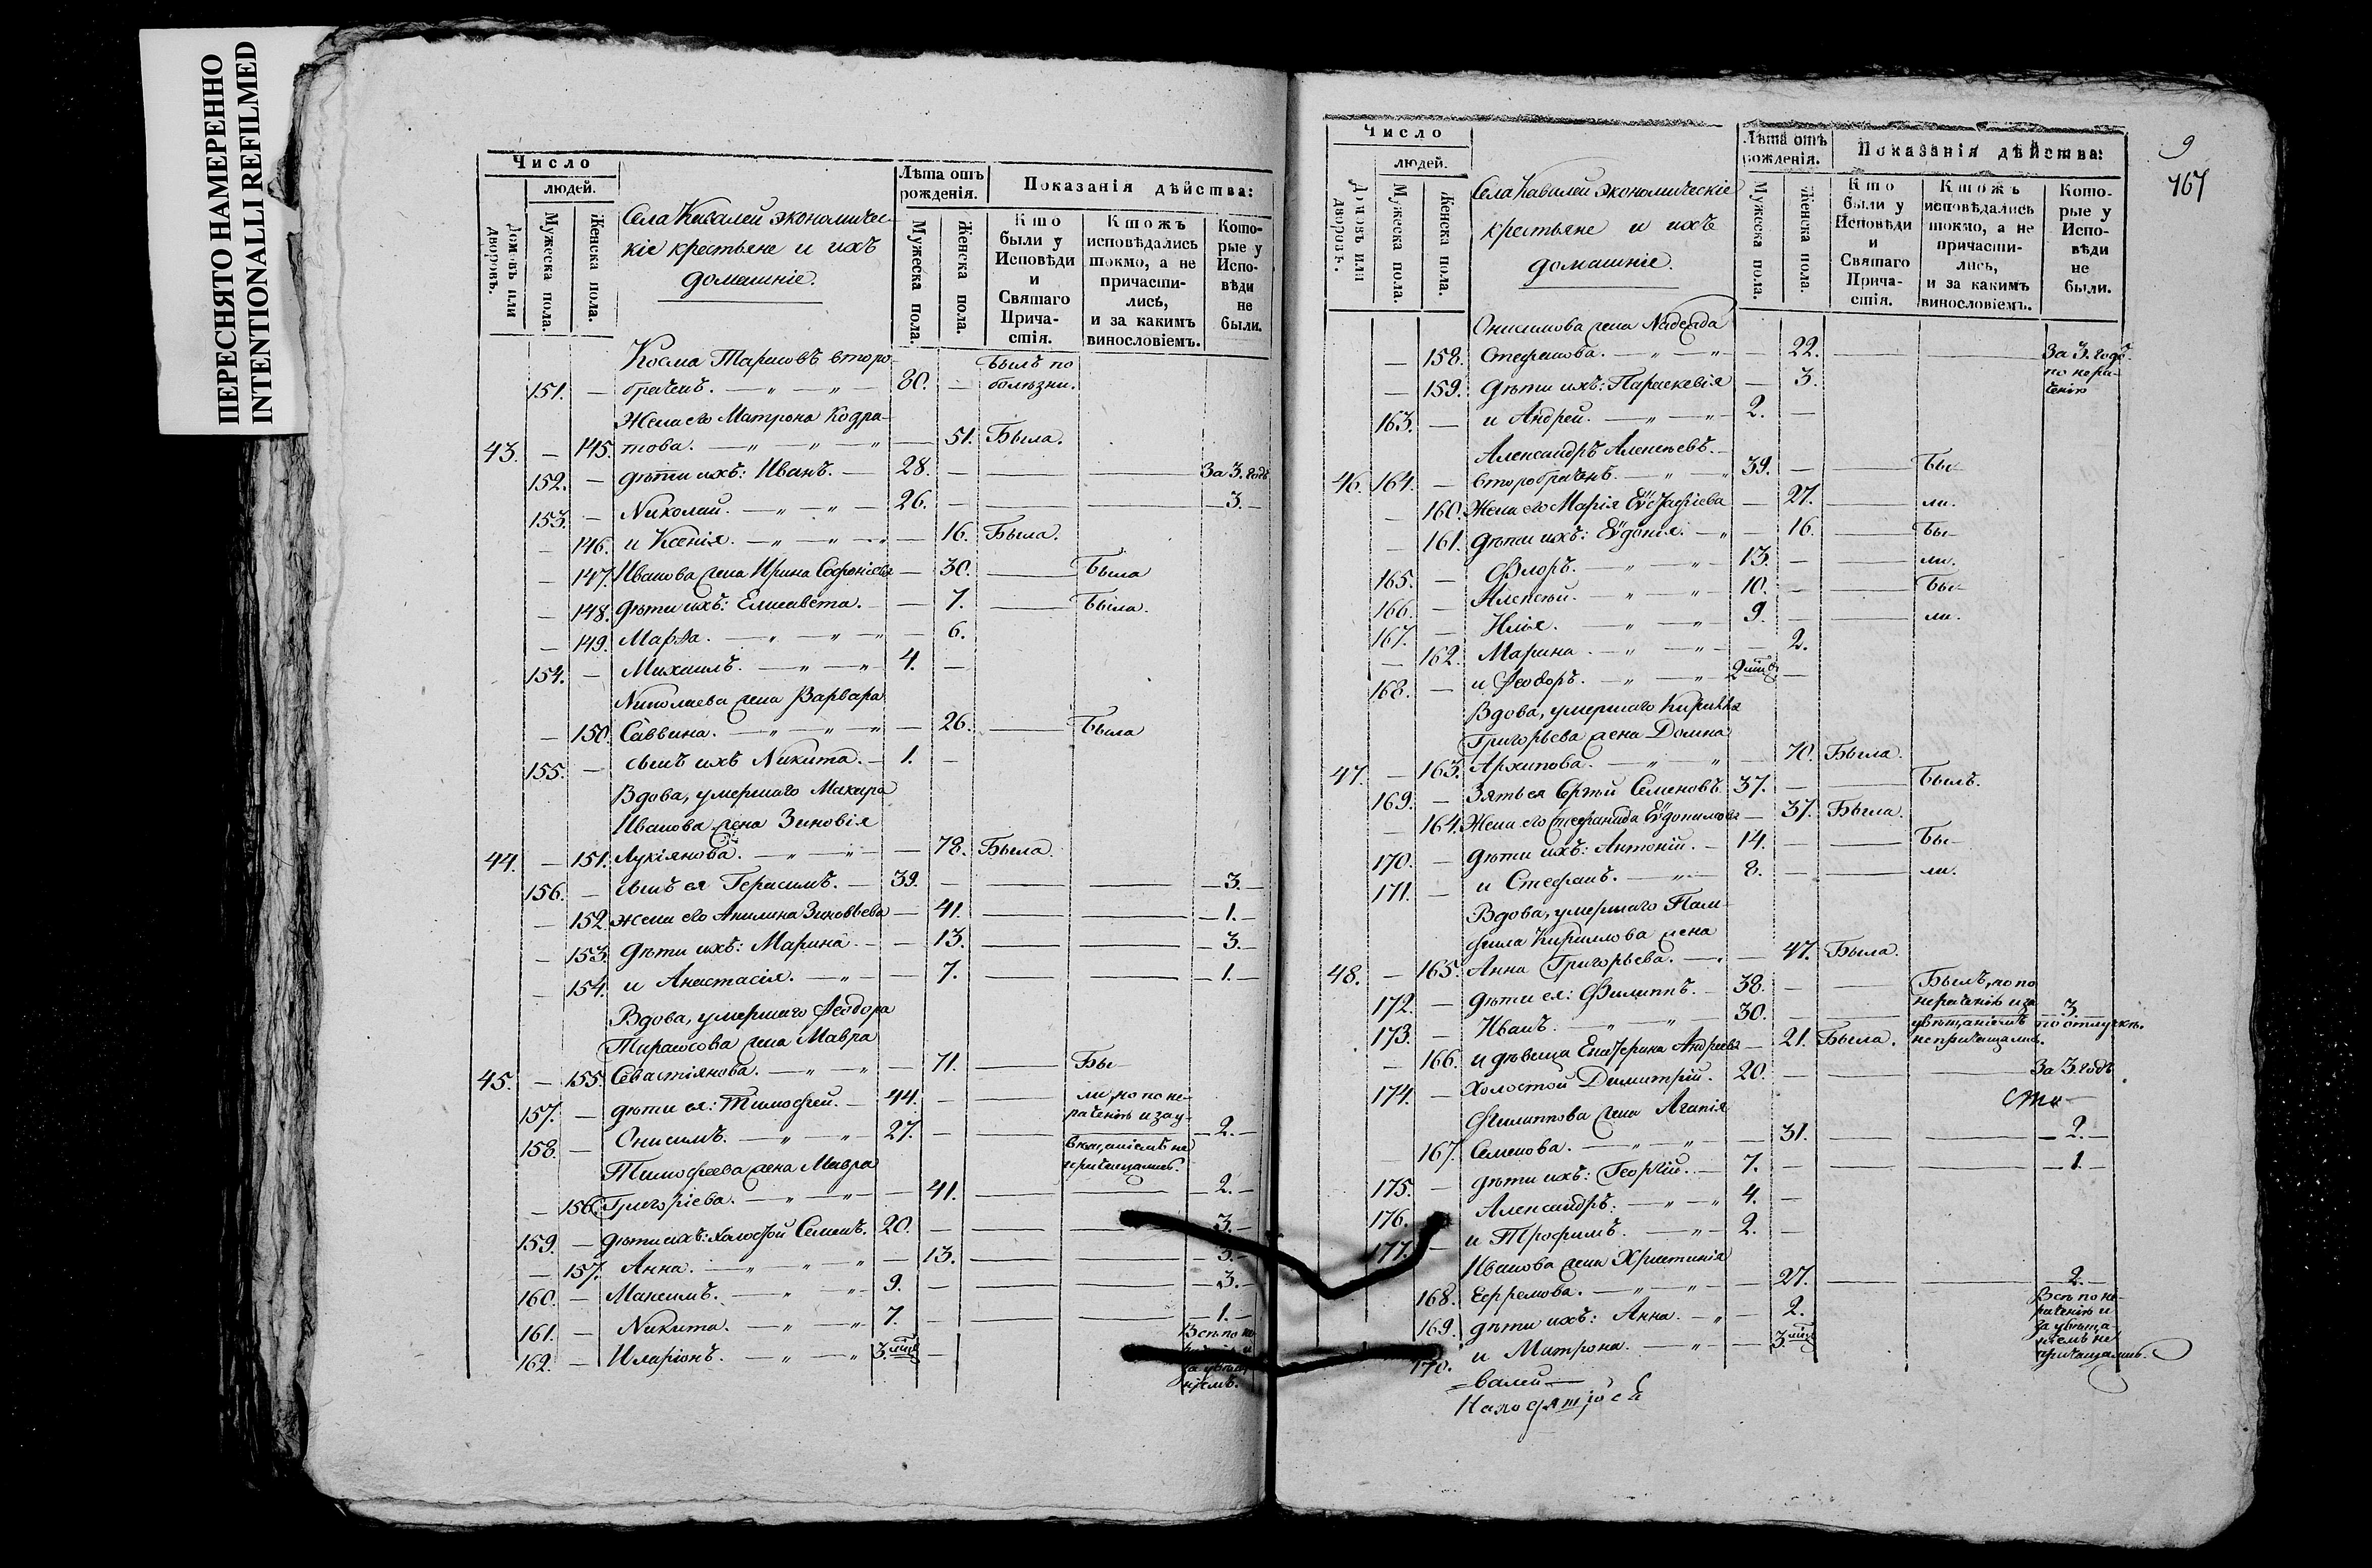 ПЕРЕСНЯТО НАМЕРЕННО
INTENTIONALLI REFILMED
Число
людей.
Домовъ или дворовъ.
Мужеска пола.
Женска пола.
Села Кивалей экономичес-
кіе крестьяне и ихъ
домашніе.
Лѣта отъ рожденія.
Мужеска пола.
Женска пола.
Показанія дѣйства:
Кто были у Исповѣди и Святаго Прича- стія.
Ктожъ исповѣдались токмо, а не причасти- лись, и за какимъ винословіемъ.
Кото- рые у Испо- вѣди не были.
Косма Тарасовъ второ-
151. — браченъ. — „ — „ — 80. — былъ по болѣзни.
Жена его Матрона Кодра-
43. — 145. това. — „ — „ — „ — 51. Была.
152. — дѣти ихъ: Иванъ. — 28. — За 3. годъ
153. — Николай. — „ — „ — 26. — 3. —
— 146. и Ксенія. — „ — „ — 16. Была.
— 147. Иванова жена Ирина Софоніева — 30. — Была
— 148. дѣти ихъ: Елисавета. — 7. — Была.
— 149. Марѳа. — „ — „ — 6.
154. — Михаилъ. — „ — „ — 4. —
Николаева жена Варвара
— 150. Саввина. — „ — „ — 26. — Была
155. — сынъ ихъ Никита. — 1. —
Вдова, умершаго Макара
Иванова жена Зиновія
44. — 151. Лукіянова. — „ — „ — 78. Была.
156. — сынъ ея Герасимъ. — 39. — 3. —
— 152. жена его Акилина Зиновьева — 41. — 1. —
— 153. дѣти ихъ: Марина. — 13. — 3. —
— 154. и Анастасія. — „ — 7. — 1. —
Вдова, умершаго Ѳеодора
Тарасова жена Мавра
45. — 155. Севастіянова. — „ — „ — 71. — Бы-
157. — дѣти ея: Тимофей. — 44. — ли, но по не-
раченію и за у-
158. — Онисимъ. — „ — „ — 27. — вѣщаніемъ не 2. —
причащались.
Тимофеева жена Мавра
— 156. Григоріева. — „ — „ — 41. — 2. —
159. — дѣти ихъ: холостой Семенъ. 20. — 3. —
— 157. Анна. — „ — „ — „ — 13. — 3. —
160. — Максимъ. — „ — „ — 9. — 3. —
161. — Никита. — „ — „ — 7. — 1. —
Всѣ по не-
162. — Иларіонъ. — „ — „ 3. мца —
9
167
Число
людей.
Домовъ или дворовъ.
Мужеска пола.
Женска пола.
Села Кивалей экономическіе
крестьяне и ихъ
домашніе.
Лѣта отъ рожденія.
Мужеска пола.
Женска пола.
Показанія дѣйства:
Кто были у Исповѣди и Святаго Прича- стія.
Ктожъ исповѣдались токмо, а не причасти- лись, и за какимъ винословіемъ.
Кото- рые у Испо- вѣди не были.
Онисимова жена Надежда
— 158. Стефанова. — „ — „ — 22. — За 3. годъ
по нера-
ченію
— 159. дѣти ихъ: Параскевія — 3.
163. — и Андрей. — „ — „ — 2. —
Александръ Алексѣевъ. —
46. 164. — второбраченъ. — „ 39. — Бы-
— 160. Жена его Марія Еѵстафіева — 27. — ли.
— 161. дѣти ихъ: Еѵдокія. — „ — 16. — бы-
165. — Флоръ. — „ — „ — 13. — ли.
166. — Алексѣй. — „ — „ — 10. — Бы-
167. — Илія. — „ — „ — 9. — ли.
— 162. Марина. — „ — „ — 2.
168. — и Ѳеодоръ. — „ — „ —
Вдова, умершаго Кирилла
Григорьева жена Домна
47. — 163. Архипова. — „ — „ 70. Была.
169. — Зять ея Сергій Семеновъ. 37. — Былъ.
— 164. Жена его Стефанида Еѵдокимова — 37. Была.
170. — дѣти ихъ: Антоній. — 14. — Бы-
171. — и Стефанъ. — „ — 8. — ли.
Вдова, умершаго Пам-
фила Кириллова жена
48. — 165. Анна Григорьева. — 47. Была.
172. — дѣти ея: Филиппъ. — 38. — Былъ, но по
нераченію и за
173. — Иванъ. — „ — „ — 30. — увѣщаніемъ 3. по отлучкѣ.
— 166. и дѣвица Екатерина Андреева — 21. Была. не причащались.
174. — Холостой Димитрій. 20. — За 3. годъ
Филиппова жена Агапія
— 167. Семенова. — „ — „ — 31. — 2. —
175. — дѣти ихъ: Георгій. — 7. — 1. —
176. — Александръ. — „ — „ 4. —
177. — и Трофимъ. — „ — 2. —
Иванова жена Христинія
168. Ефремова. — „ — „ — 27. — 2. —
169. дѣти ихъ: Анна. — „ — 2. Всѣ по не-
раченію и
за увѣща-
170. и Матрона. — „ — 3. мца ніемъ не
причащались.
=валей—